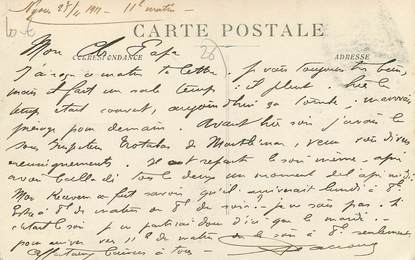 Nyons 25/4 1911 - 11h matin -
CARTE POSTALE
CORRESPONDANCE
ADRESSE
28
Mon Cher Papa
J'ai reçu ce matin ta lettre. Je vais toujours très bien,
mais il fait un sale temps. il pleut. hier le
temps était couvert, aujourd'hui ça tombe, mauvais
présage pour demain. Avant hier soir j'avais le
sous Inspecteur de Montélimar, venu voir divers
renseignements. Il est reparti le soir même, après
avoir balladé tous les deux un moment de l'après midi.
Mon Receveur a fait savoir qu'il arriverait lundi à 8h
8h du matin ou 8h du soir? je ne sais pas. Si
c'était le soir je ne partirais donc d'ici que le mardi
pour arriver vers 11h du matin ou le soir à 8h seulement
Affectueux baisers à tous